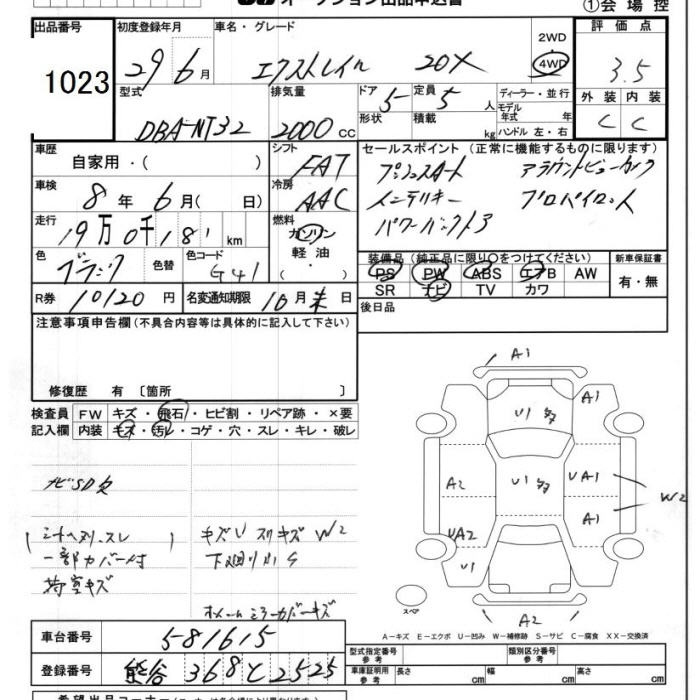 オークション出品申込書
①会場控
出品番号 初度登録年月 車名・グレード 評価点
1023 29 6月 エクストレイル 20X 2WD 4WD 3.5
型式 排気量 ドア 定員 ディーラー・並行 外装 内装
DBA-NT32 2000 CC 5 5人 モデル年式 年 C C
形状 積載 kg ハンドル 左・右
車歴 シフト セールスポイント (正常に機能するものに限ります)
自家用・( ) FAT プッシュスタート アラウンドビューカメラ
車検 冷房 インテリキー プロパイロット
8年 6月( 日) AAC パワーバックドア
走行 燃料
19万0千181km ガソリン
軽油
・( )・
色 色替 色コード 装備品 (純正品に限り○をつけてください) 新車保証書
ブラック G41 PS PW ABS エアB AW 有・無
SR ナビ TV カワ
R券 10120円 名変通知期限 10月末日 後日品
注意事項申告欄(不具合内容等は具体的に記入して下さい)
修復歴 有 〔箇所 〕
検査員 FW キズ・飛石・ヒビ割・リペア跡・×要
記入欄 内装 キズ・汚レ・コゲ・穴・スレ・キレ・破レ
ナビSD欠
一部カバー付
荷室キズ
キズU スリキズ W2
下廻り小S
A1
A1
U1 多
A2 U1 多 UA1
W2
A1
UA2
U1
スペア
A2
A-キズ E-エクボ U-凹み W-補修跡 S-サビ C-腐食 XX-交換済
車台番号 581615
登録番号 熊谷 368 と 2525
型式指定番号 参考 類別区分番号 参考
車庫証明用 参考 長さ cm 幅 cm 高さ cm
希望出品コーナー